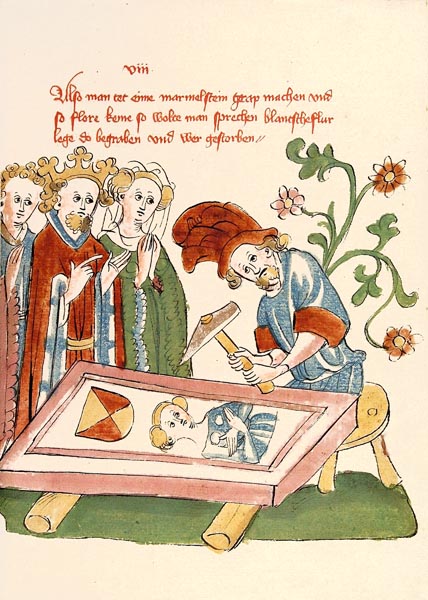 viii
Also man tet eine marmelstein grap machen vnd
so flore keme so wolte man sprechen blantscheflur
lege do begraben vnd wer gestorben